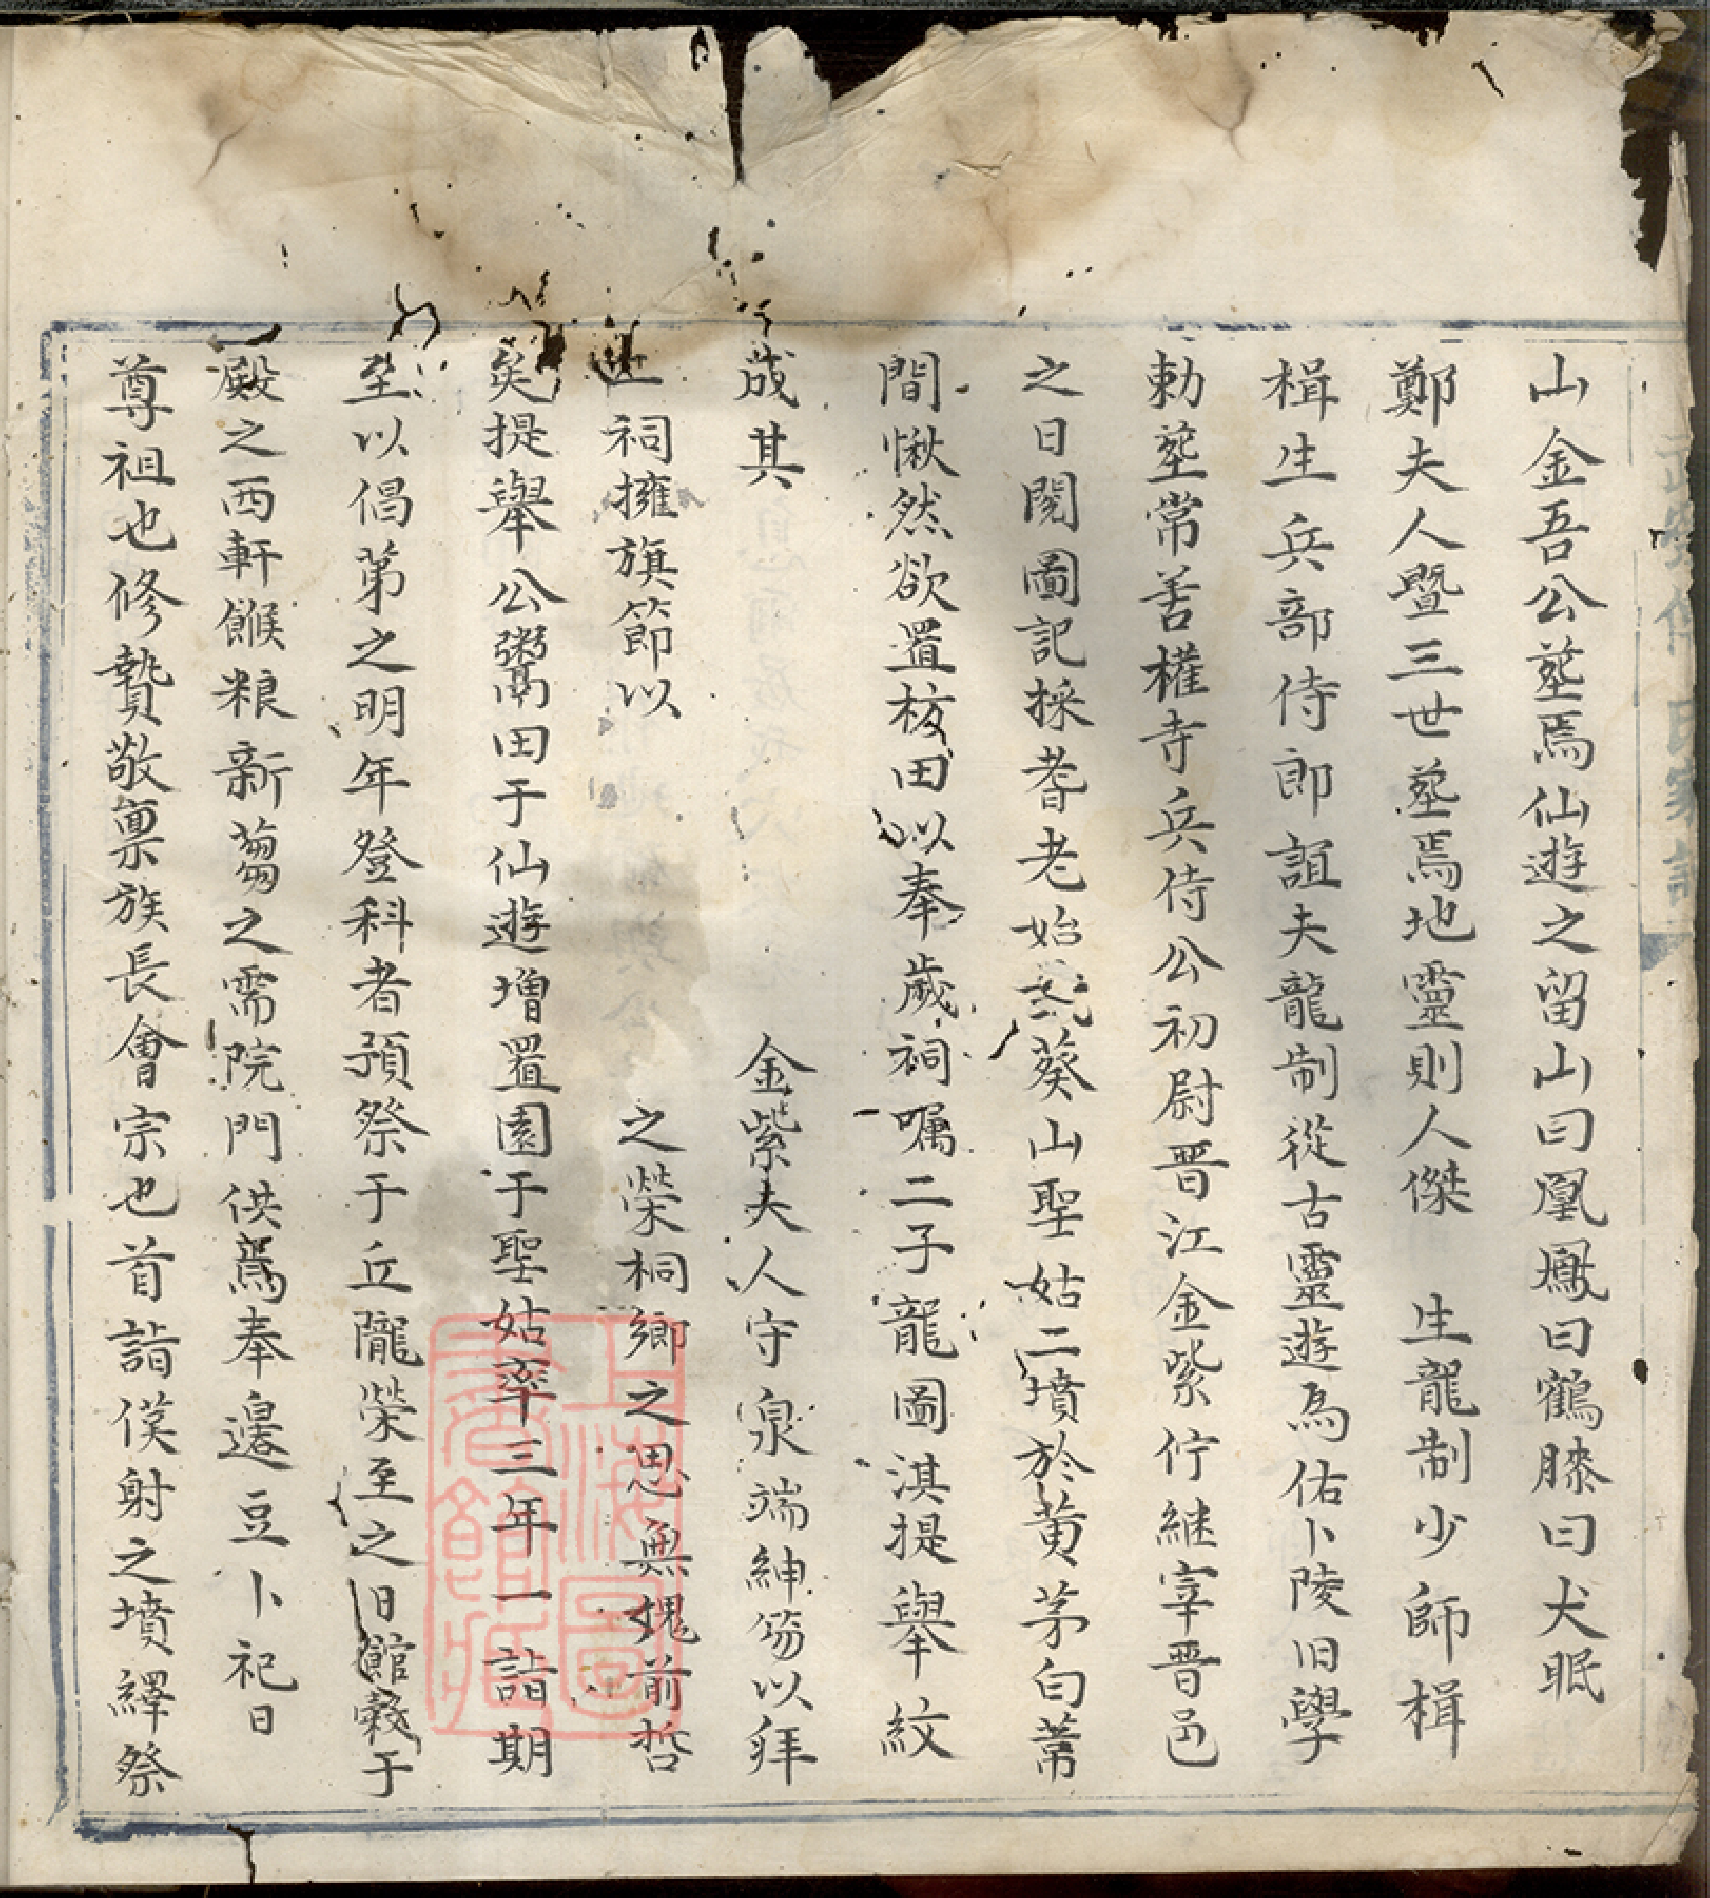 山金吾公塟焉仙遊之留山曰凰鳳曰鶴膝曰犬眠
鄭夫人暨三世塟焉地靈則人傑 生龍制少師楫
楫生兵部侍郎誼夫龍制從古靈遊為佑卜陵旧學
勅塟常善權寺兵侍公初尉晋江金紫佇継宰晋邑
之日閱圖記採耆老始葵山聖姑二墳於黄茅白葦
間愀然欲置校田以奉歲祠嘱二子龍圖淇提舉紋
成其 金紫夫人守泉端紳笏以拜
祠擁旗節以 之榮桐鄉之思無媿前哲
矣提舉公鬻田于仙遊增置園于聖姑率三年一詣期
至以倡第之明年登科者預祭于丘隴榮至之日館穀于
殿之西軒餱粮新蒭之需院門供焉奉邉豆卜祀日
尊祖也修贄敬禀族長會宗也首詣僕射之墳繹祭
上海圖書館藏